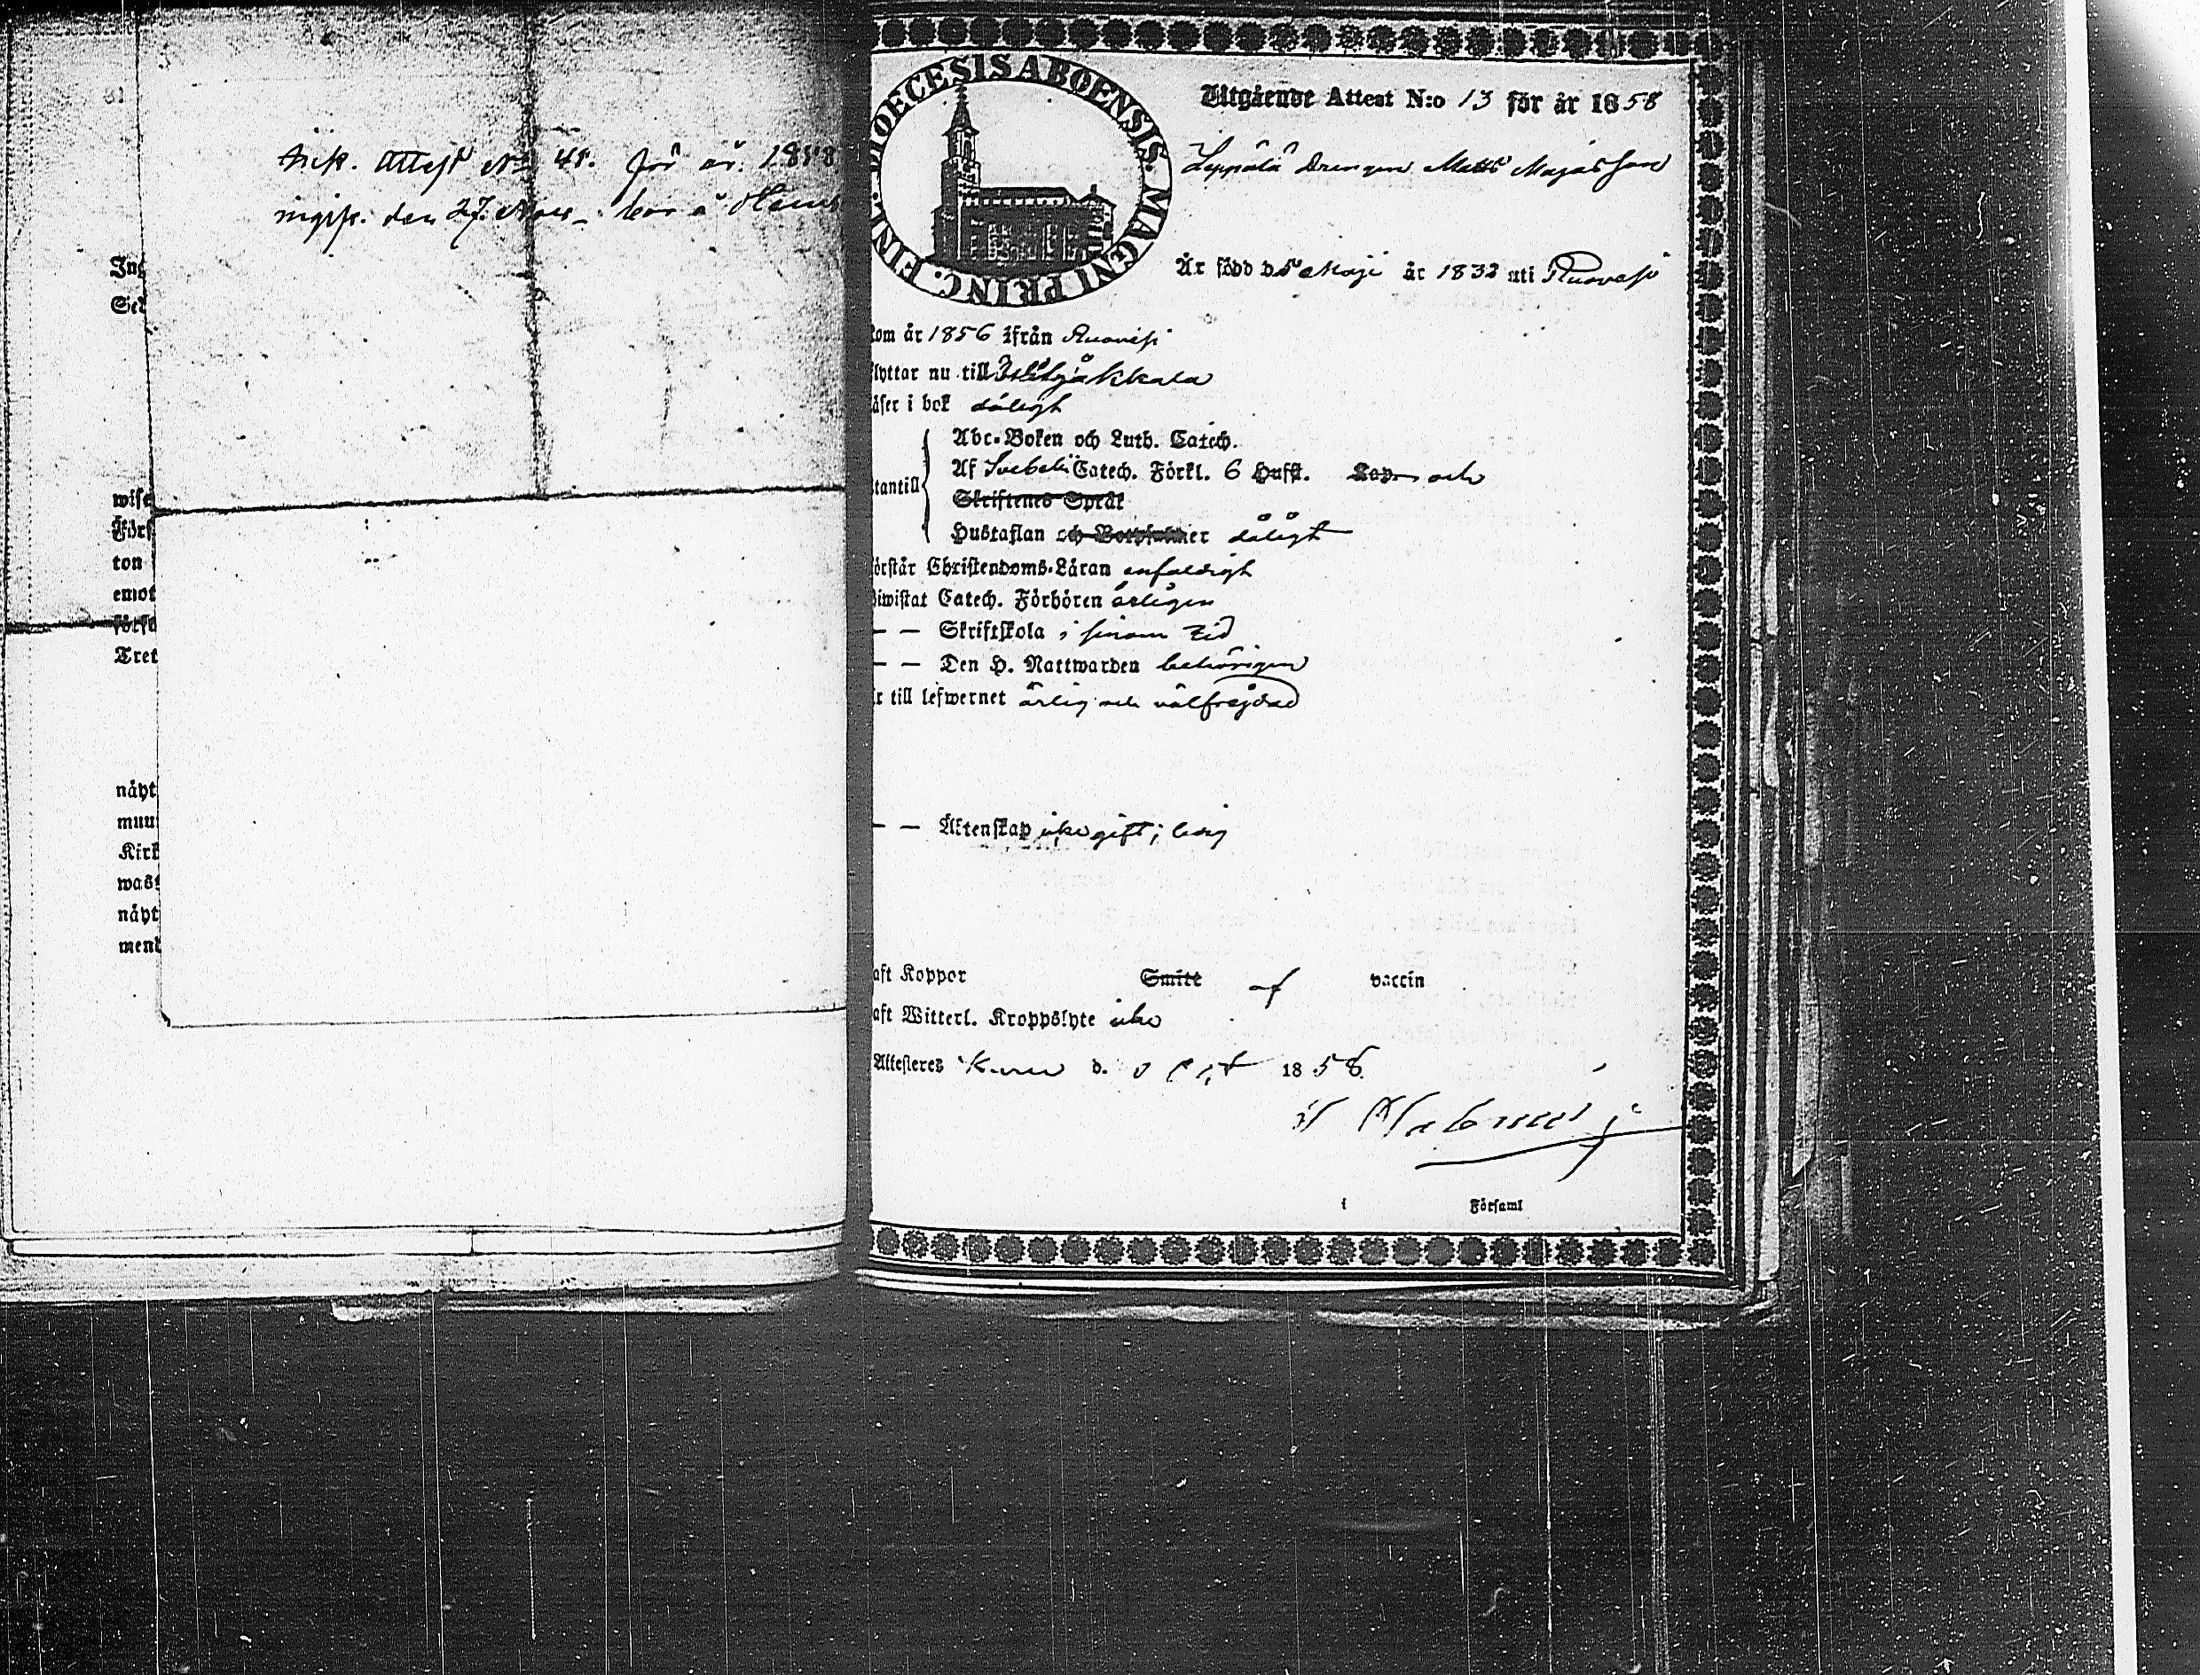 Ank. Attest No 41. för år. 1858
ingifv. den 27. Nov. bor å
Ing
Sed
wise
Förs
ton
emot
förso
Tret
näyt
muu
Kirk
wast
näyt
mend
DIOECESIS ABOENSIS. MAGNI PRINC. FINL.
Utgående Attest N:o 13 för år 1858
Leppälä Drengen Matts Majasson
Är född d. 5 Maji år 1832 uti Ruovesi
kom år 1856 ifrån Ruovesi
flyttar nu till Wiljakkala
äser i bok dåligt
Abc-Boken och Luth. Catech.
Af Svebelii Catech. Förkl. 6 Hufst. och
tantill
Skriftenes Språk
Hustaflan och Botpsalmer dåligt
örstår Christendoms-Läran enfaldigt
Biwistat Catech. Förhören årligen
— — Skriftskola i sinom tid
— — Den H. Nattwarden behörigen
r till lefwernet ärlig och välfrejdad
— — Äktenskap icke gift; ledig
aft Koppor Smitt af vaccin
aft Witterl. Kroppslyte icke
Attesteres Kuru d. Oct 1858.
i Församl